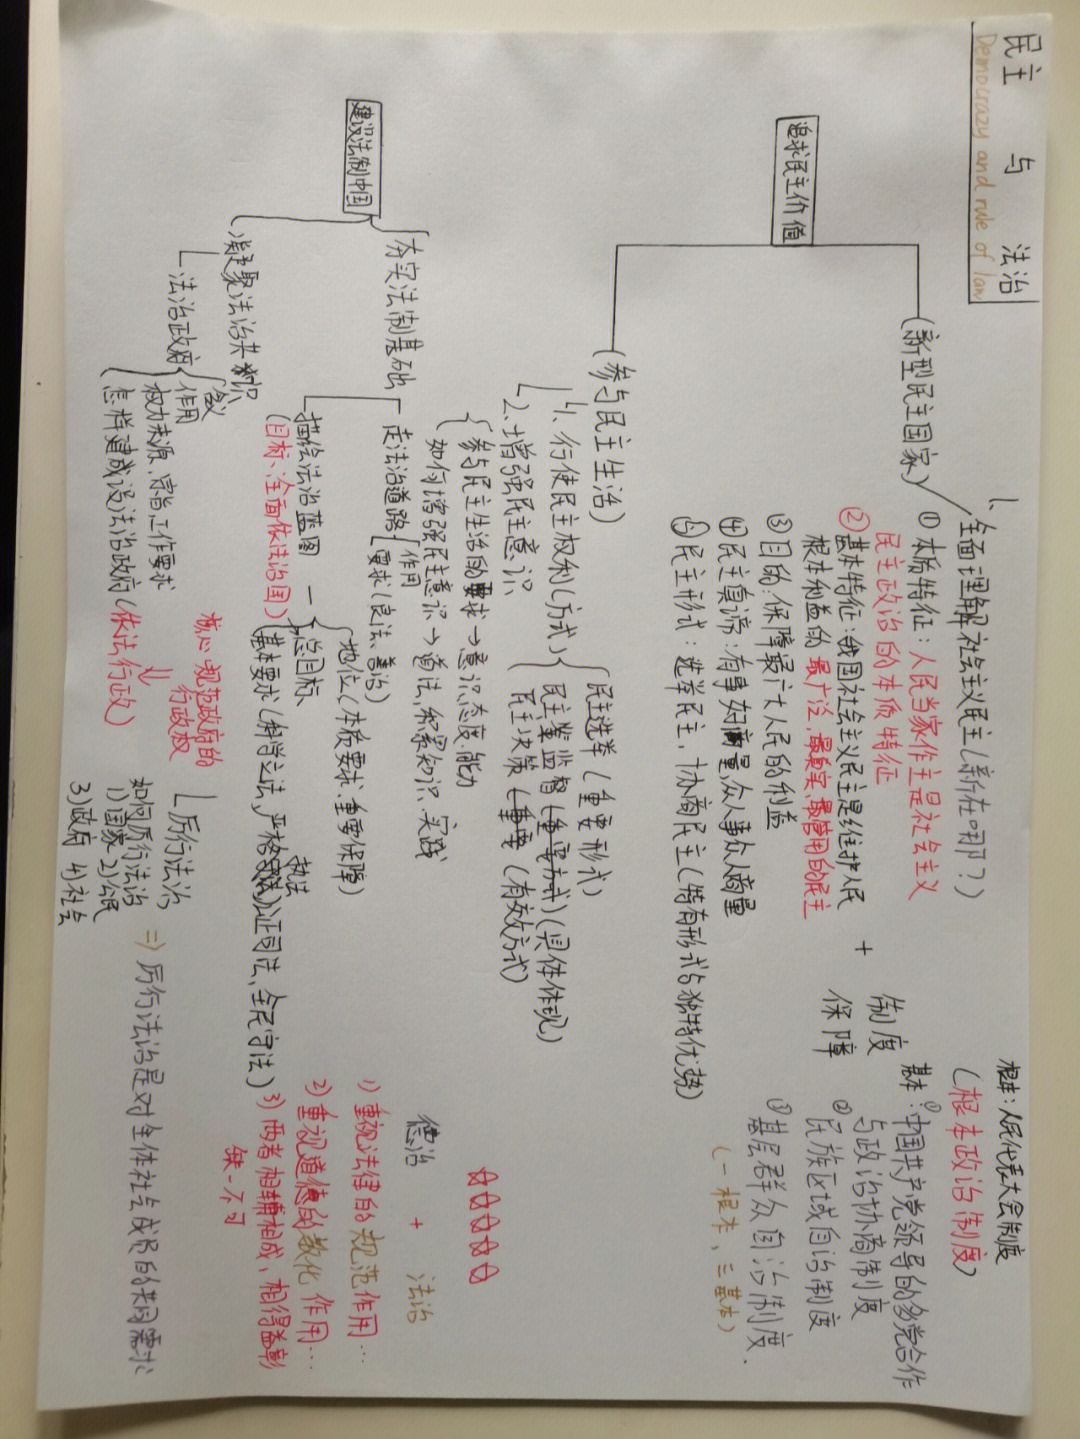 民主 与 法治
Democrazy and rule of law
追求民主价值
(新型民主国家)
1、全面理解社会主义民主(新在哪?)
① 本质特征：人民当家作主是社会主义
民主政治的本质特征
② 基本特征：我国社会主义民主是维护人民
根本利益的 最广泛、最真实、最管用的民主
③ 目的：保障最广大人民的利益
④ 民主真谛：有事好商量,众人事众人商量
⑤ 民主形式：选举民主，协商民主(特有形式与独特优势)
+
制度
保障
根本：人民代表大会制度
(根本政治制度)
基本：①中国共产党领导的多党合作
与政治协商制度
② 民族区域自治制度
③ 基层群众自治制度.
(一根本、三基本)
(参与民主生活)
1、行使民主权利(方式)
民主选举(重要形式)
民主监督(具体体现)
民主决策(有效方式)
2、增强民主意识
参与民主生活的要求→意识、态度、能力
如何增强民主意识→道法,积累知识、实践
建设法制中国
夯实法制基础
走法治道路
作用
要求(良法、善治)
描绘法治蓝图
(目标、全面依法治国)
地位(本质要求、重要保障)
总目标、
基本要求(科学立法,严格执法,公正司法、全民守法)
德治 + 法治
1) 重视法律的规范作用…
2) 重视道德的教化作用…
3) 两者相辅相成、相得益彰
缺一不可
凝聚法治共识
法治政府
含义
作用
权力来源、宗旨、工作要求
怎样建成设法治政府(依法行政)
核心 规范政府的
行政权
厉行法治
如何厉行法治
1)国家 2)公民
3)政府 4)社会
⇒ 厉行法治是对全体社会成员的共同需求